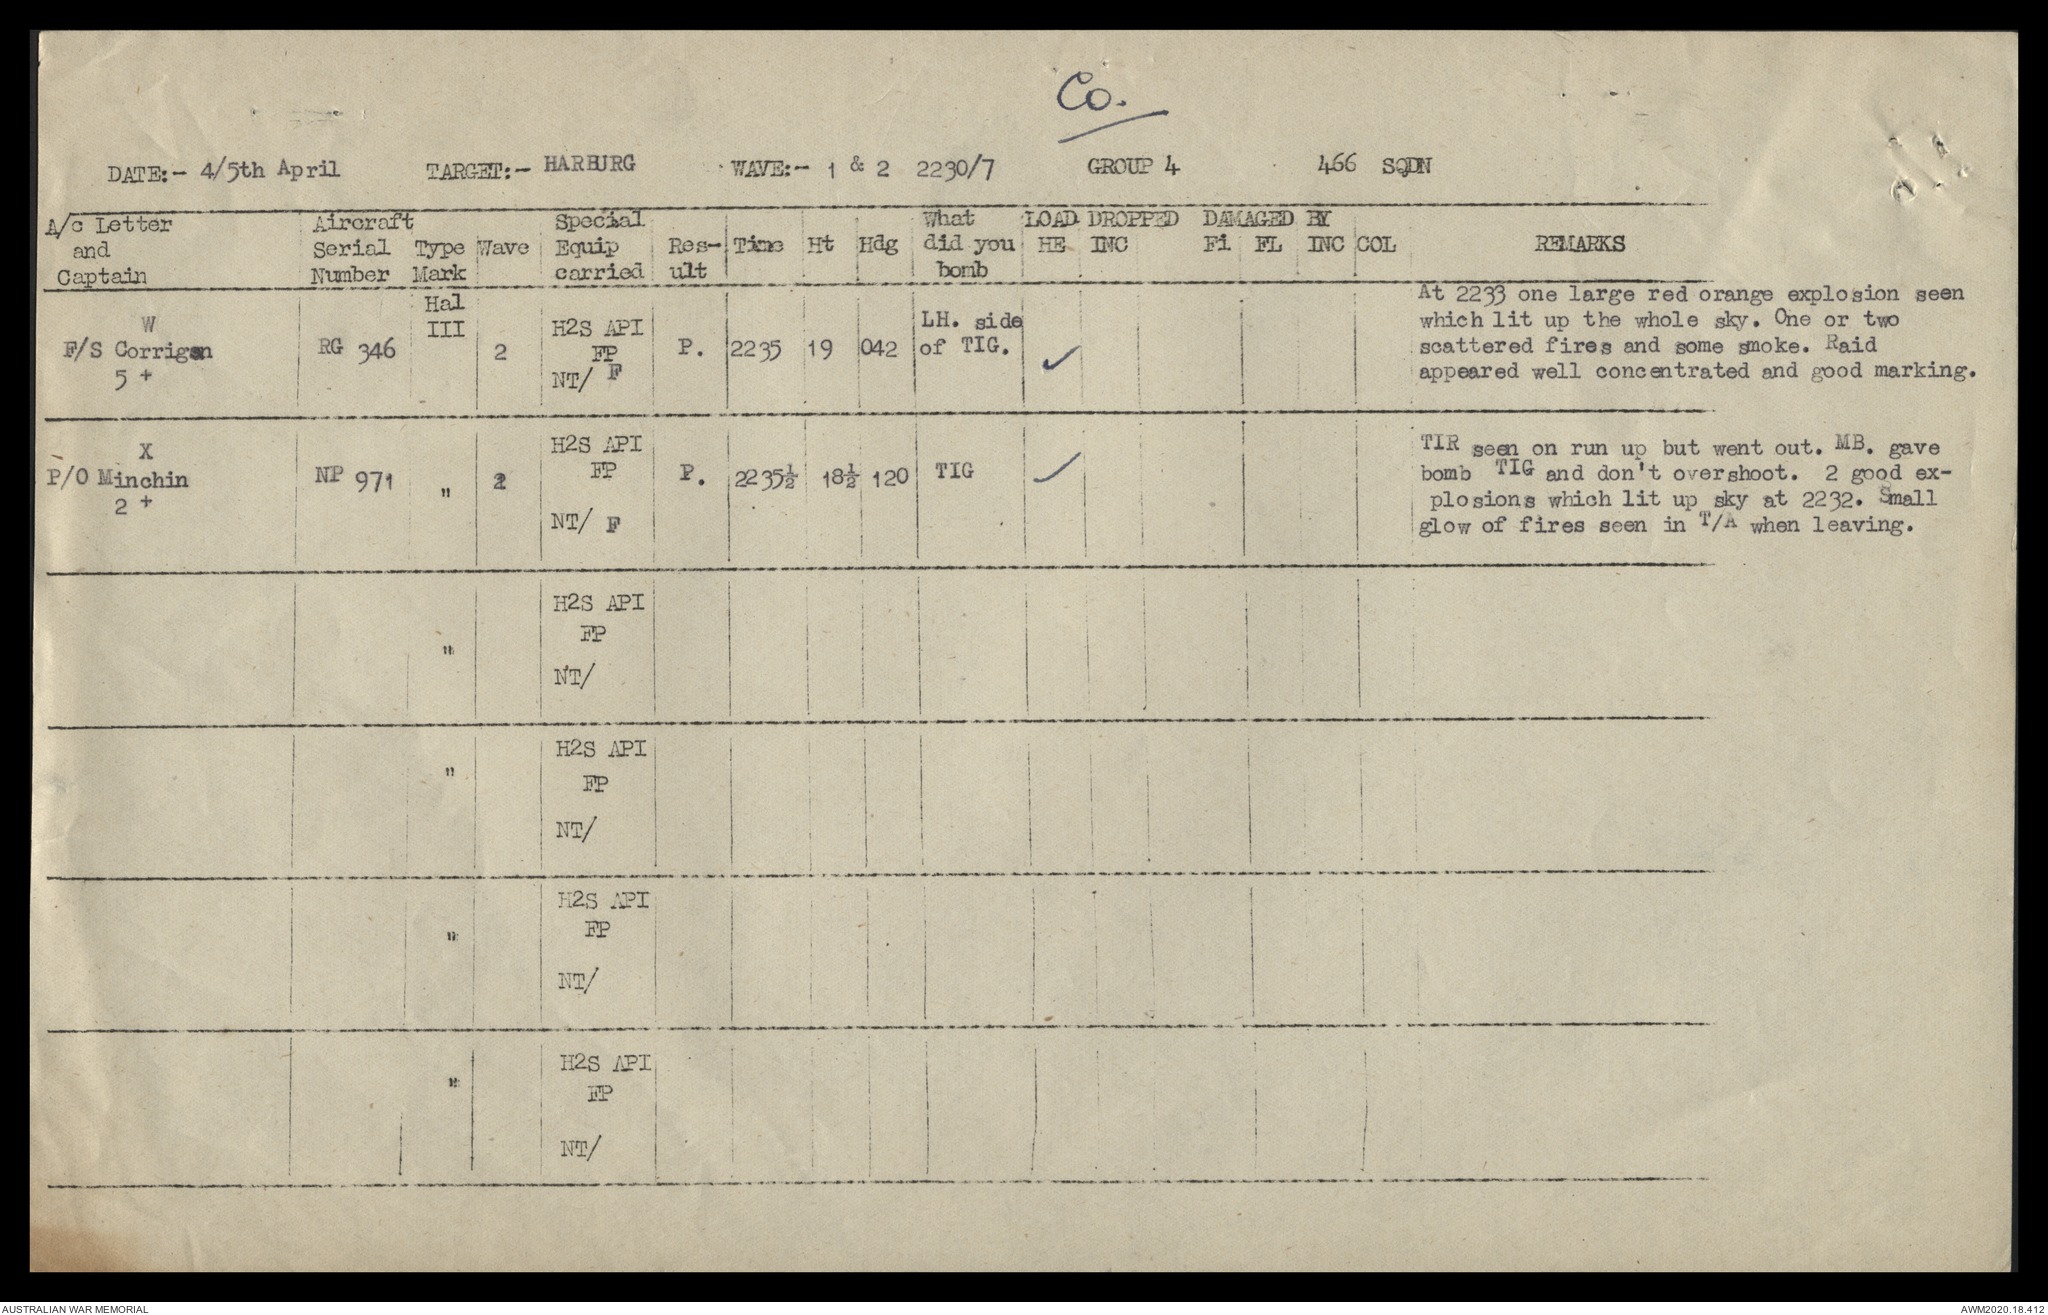 Co.
DATE:- 4/5th April TARGET:- HARBURG WAVE:- 1 & 2 2230/7 GROUP 4 466 SQDN
A/c Letter and Captain | Aircraft Serial Number | Type Mark | Wave | Special Equip carried | Res-ult | Time | Ht | Hdg | What did you bomb | LOAD DROPPED HE INC | DAMAGED BY Fi FL INC COL | REMARKS
W
F/S Corrigan
5 +
RG 346
Hal
III
2
H2S API
FP
NT/ F
P.
2235
19
042
LH. side
of TIG.
✓
At 2233 one large red orange explosion seen
which lit up the whole sky. One or two
scattered fires and some smoke. Raid
appeared well concentrated and good marking.
X
P/O Minchin
2 +
NP 971
"
2
H2S API
FP
NT/ F
P.
2235½
18½
120
TIG
✓
TIR seen on run up but went out. MB. gave
bomb TIG and don't overshoot. 2 good ex-
plosions which lit up sky at 2232. Small
glow of fires seen in T/A when leaving.
H2S API
FP
"
NT/
H2S API
"
FP
NT/
H2S API
FP
"
NT/
H2S API
"
FP
NT/
AUSTRALIAN WAR MEMORIAL AWM2020.18.412